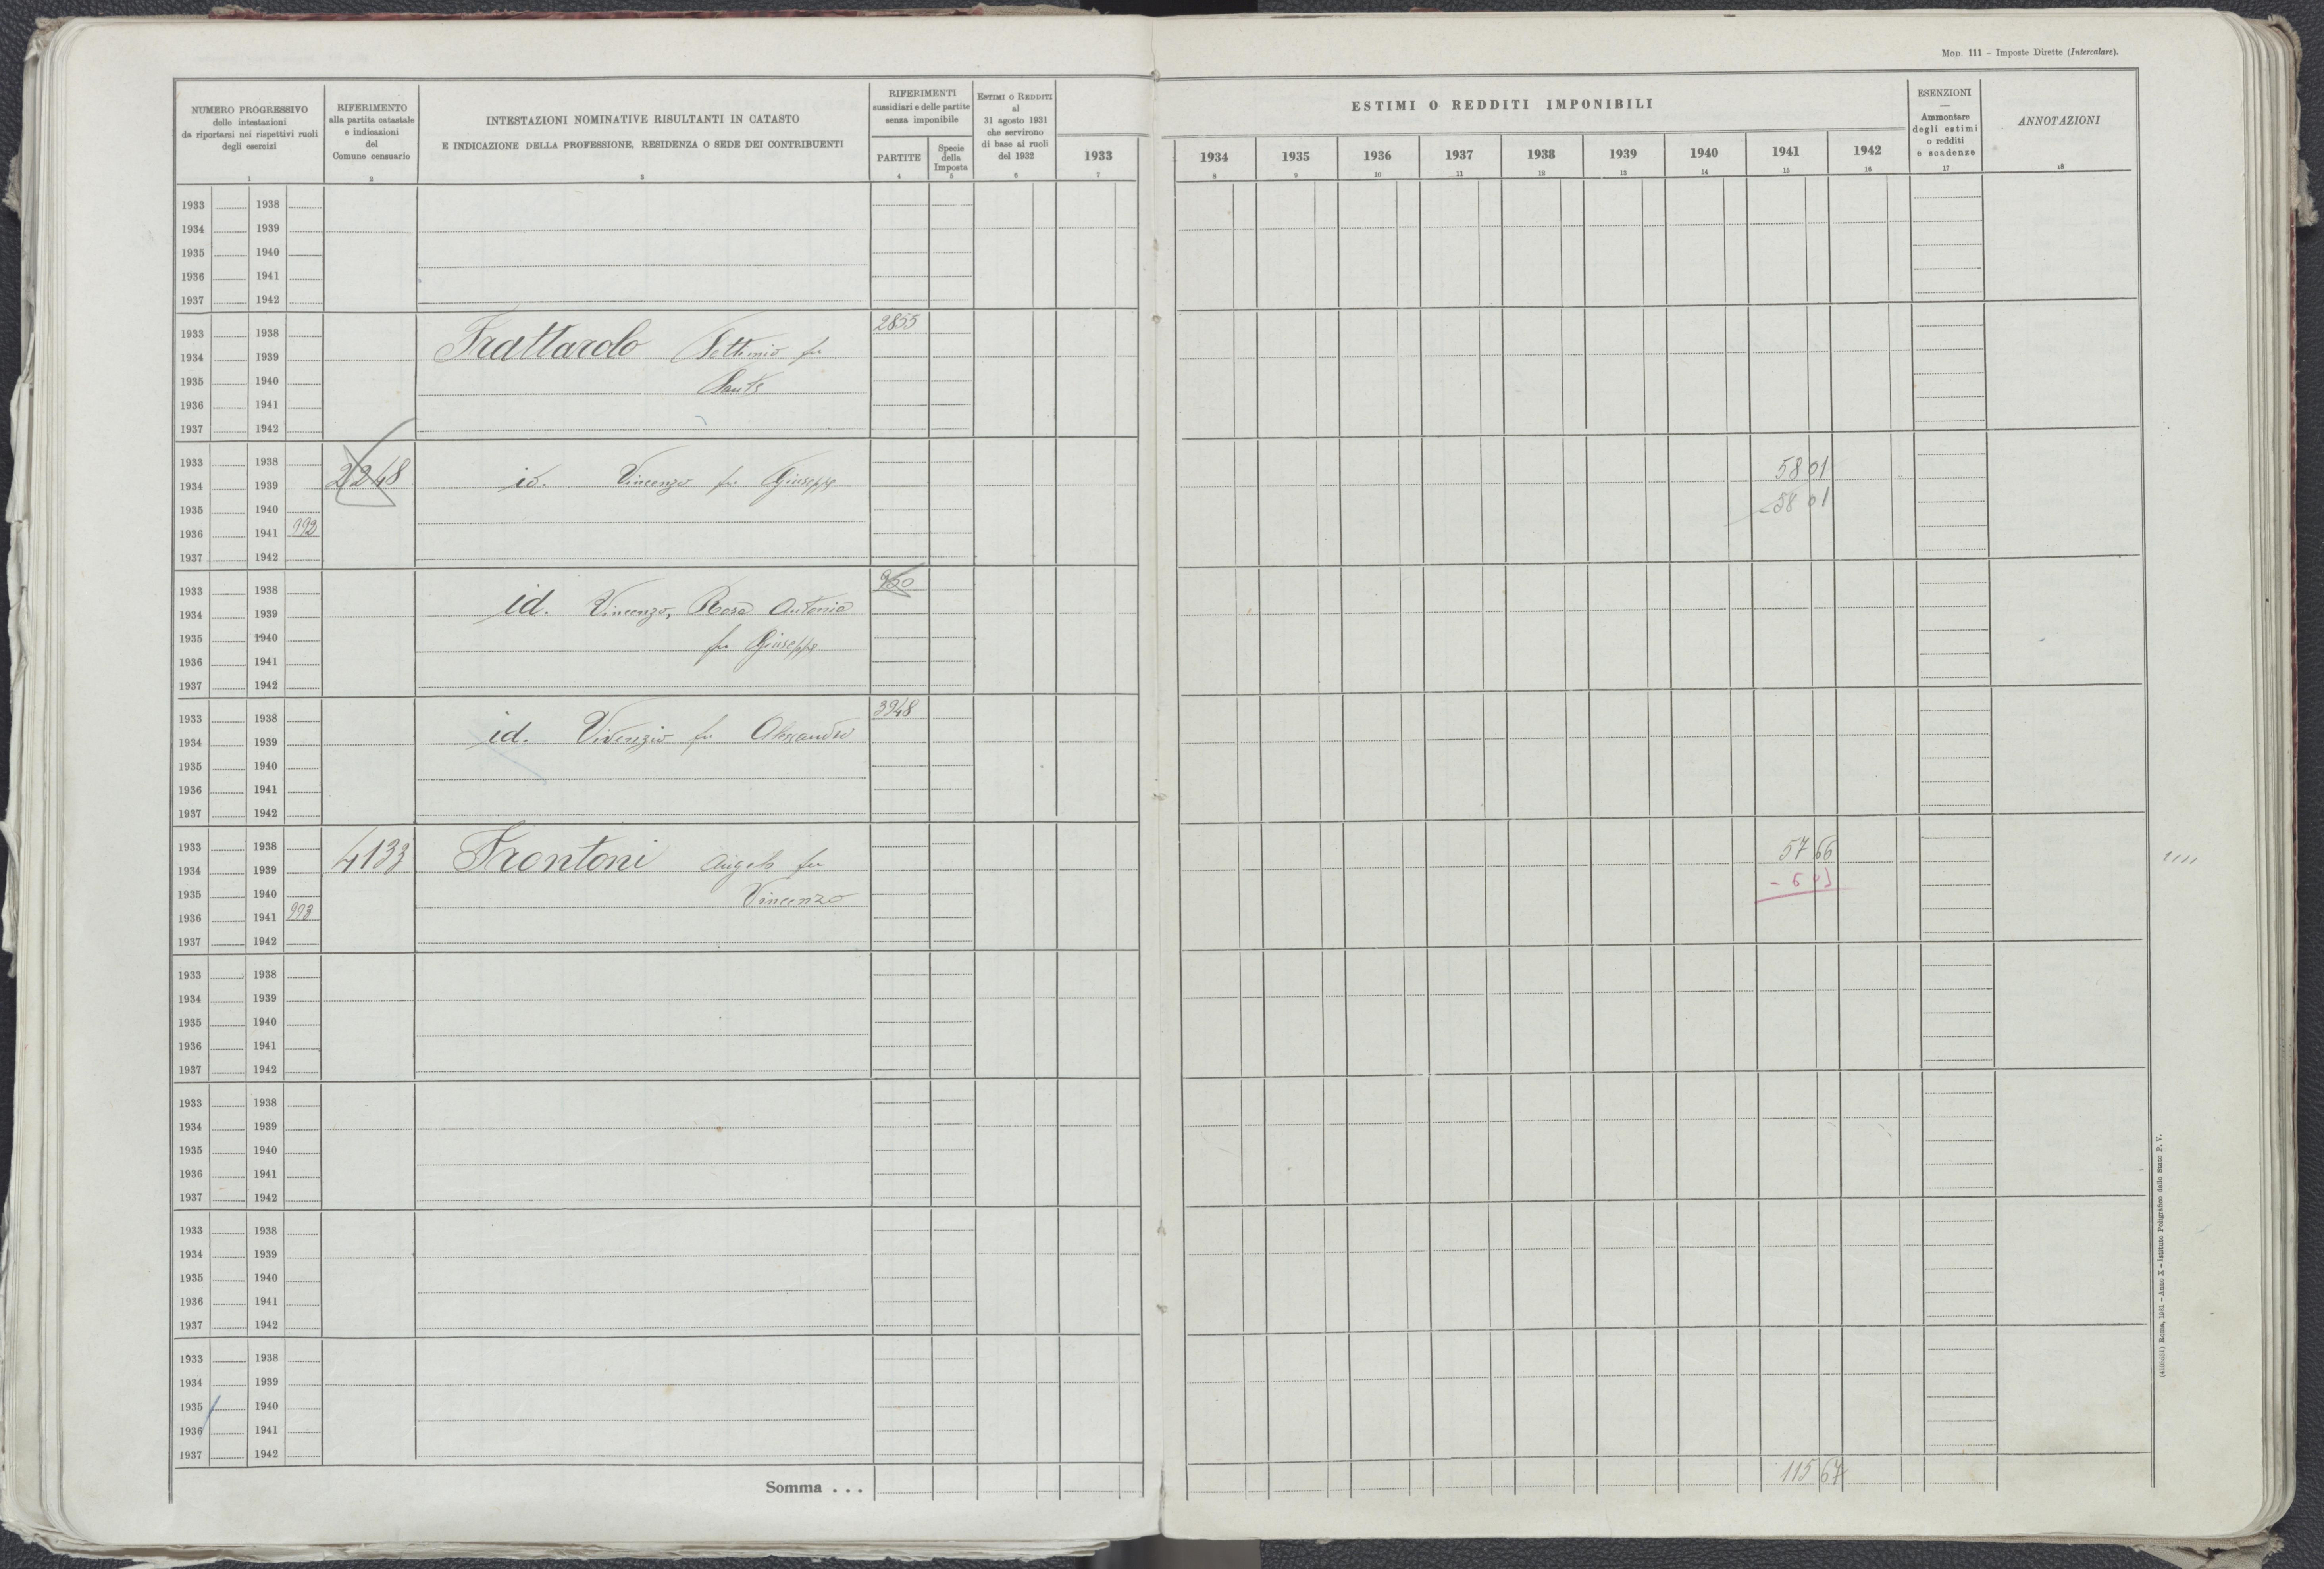 Mod. 111 – Imposte Dirette (Intercalare).
NUMERO PROGRESSIVO
delle intestazioni
da riportarsi nei rispettivi ruoli
degli esercizi
1
RIFERIMENTO
alla partita catastale
e indicazioni
del
Comune censuario
2
INTESTAZIONI NOMINATIVE RISULTANTI IN CATASTO
E INDICAZIONE DELLA PROFESSIONE, RESIDENZA O SEDE DEI CONTRIBUENTI
3
RIFERIMENTI
sussidiari e delle partite
senza imponibile
PARTITE
4
Specie
della
Imposta
5
Estimi o Redditi
al
31 agosto 1931
che servirono
di base ai ruoli
del 1932
6
1933
7
ESTIMI O REDDITI IMPONIBILI
1934 1935 1936 1937 1938 1939 1940 1941 1942
8 9 10 11 12 13 14 15 16
ESENZIONI
—
Ammontare
degli estimi
o redditi
e scadenze
17
ANNOTAZIONI
18
1933 1938
1934 1939
1935 1940
1936 1941
1937 1942
2855
1933 1938
1934 1939 Frattarolo Settimio fu
1935 1940 Sante
1936 1941
1937 1942
1933 1938 58 01
1934 1939 2248 id. Vincenzo fu Giuseppe
1935 1940 -58 01
1936 1941 992
1937 1942
1933 1938 960
1934 1939 id. Vincenzo, Rosa Antonia
1935 1940 fu Giuseppe
1936 1941
1937 1942
3948
1933 1938
1934 1939 id. Vivenzio fu Alessandro
1935 1940
1936 1941
1937 1942
1933 1938 57 66
1934 1939 4133 Frontoni Angelo fu
1935 1940 Vincenzo
1936 1941 993
1937 1942
1933 1938
1934 1939
1935 1940
1936 1941
1937 1942
1933 1938
1934 1939
1935 1940
1936 1941
1937 1942
1933 1938
1934 1939
1935 1940
1936 1941
1937 1942
1933 1938
1934 1939
1935 1940
1936 1941
1937 1942
Somma . . . 115 67
Roma, 1931 – Anno X – Istituto Poligrafico dello Stato P. V.